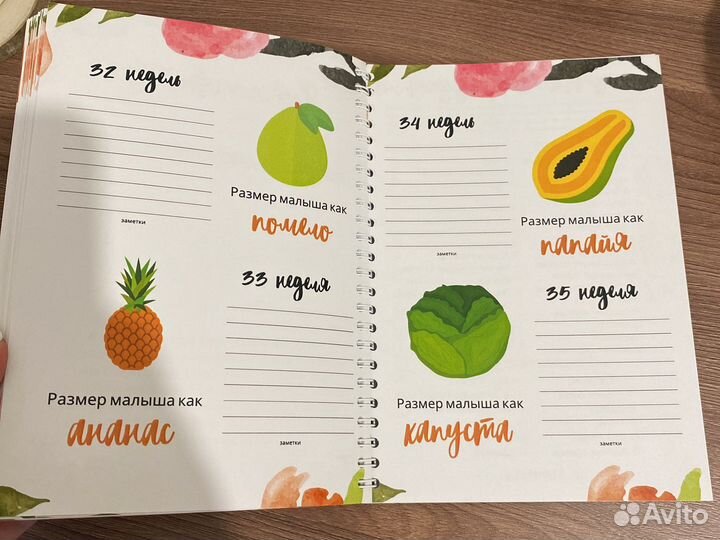 32 недель
Размер малыша как
помело
заметки
33 неделя
Размер малыша как
ананас
заметки
34 недель
Размер малыша как
папайя
заметки
35 неделя
Размер малыша как
капуста
заметки
Avito